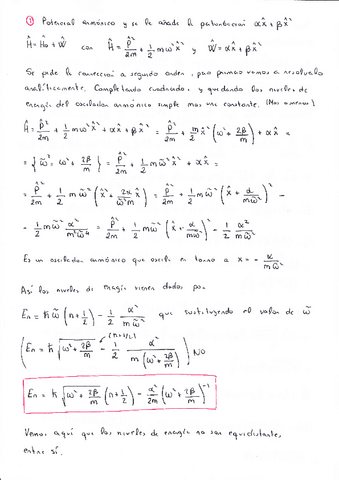 ① Potencial armónico y se le añade la perturbación αx̂ + βx̂²
Ĥ = Ĥ₀ + Ŵ con Ĥ = p̂²/2m + 1/2 mω²x̂² y Ŵ = αx̂ + βx̂²
Se pide la corrección a segundo orden, pero primero vamos a resolverlo
analíticamente. Completando cuadrados, y quedando los niveles de
energía del oscilador armónico simple mas una constante.
Ĥ = p̂²/2m + 1/2 mω²x̂² + αx̂ + βx̂² = p̂²/2m + m/2 x̂² (ω² + 2β/m) + αx̂ =
= { ω̃² = ω² + 2β/m } = p̂²/2m + 1/2 mω̃²x̂² + αx̂ =
= p̂²/2m + 1/2 mω̃² (x̂² + 2α/ω̃²m x̂) = p̂²/2m + 1/2 mω̃² (x̂ + α/mω̃²)² −
− 1/2 mω̃² α²/m²ω̃⁴ = p̂²/2m + 1/2 mω̃² (x̂ + α/mω̃²)² − 1/2 α²/mω̃²
Es un oscilador armónico que oscila en torno a x = − α/mω̃²
Así los niveles de energía vienen dados por
Eₙ = ħω̃ (n + 1/2) − 1/2 α²/mω̃² que sustituyendo el valor de ω̃
(Eₙ = ħ √(ω² + 2β/m) (n+1/2) − 1/2 α²/m(ω² + 2β/m)) NO
Eₙ = ħ √(ω² + 2β/m) (n + 1/2) − α²/2m (ω² + 2β/m)⁻¹
Vemos aquí que los niveles de energía no son equidistantes,
entre sí.